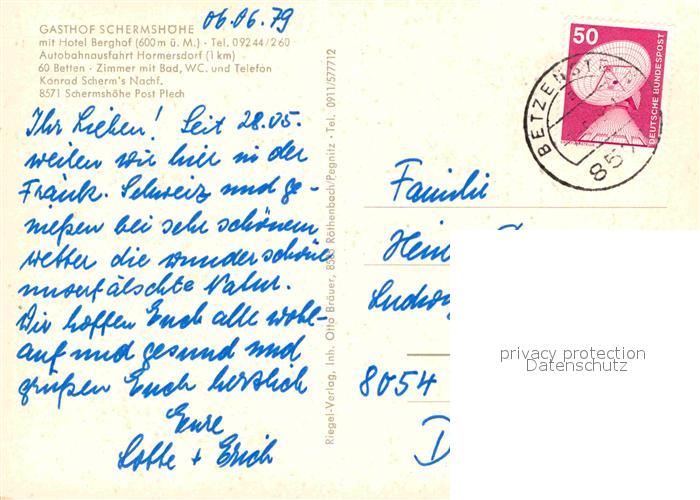 06.06.79
GASTHOF SCHERMSHÖHE
mit Hotel Berghof (600 m ü. M.) · Tel. 09244/260
Autobahnausfahrt Hormersdorf (1 km)
60 Betten · Zimmer mit Bad, WC. und Telefon
Konrad Scherm's Nachf.
8571 Schermshöhe Post Plech
Ihr Lieben! Seit 28.05.
weilen wir hier in der
Fränk. Schweiz und ge-
nießen bei sehr schönem
Wetter die wunderschöne
unverfälschte Natur.
Wir hoffen Euch alle wohl-
auf und gesund und
grüßen Euch herzlich
Eure
Lotte + Erich
Riegel-Verlag, Inh. Otto Bräuer, 8505 Röthenbach/Pegnitz · Tel. 0911/577712
50
DEUTSCHE BUNDESPOST
BETZENST
857
Familie
Hein
Ludwig
8054
D
privacy protection
Datenschutz